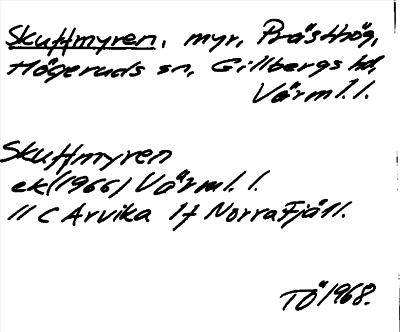 Skuttmyren, myr, Prästhög,
Högeruds sn, Gillbergs hd,
Värml. l.
Skuttmyren
ek (1966) Värml. l.
11 C Arvika 1f Norra Fjäll.
TÖ 1968.